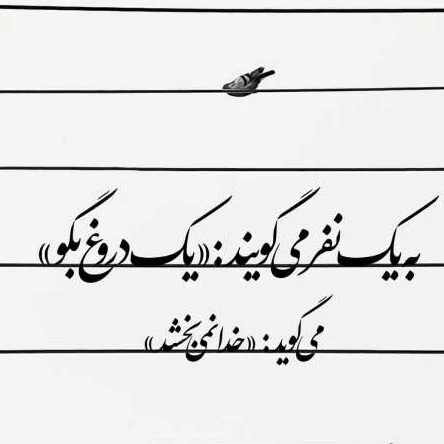 به یک نفر می گویند : «یک دروغ بگو»
می گوید : «خدا نمی بخشد»